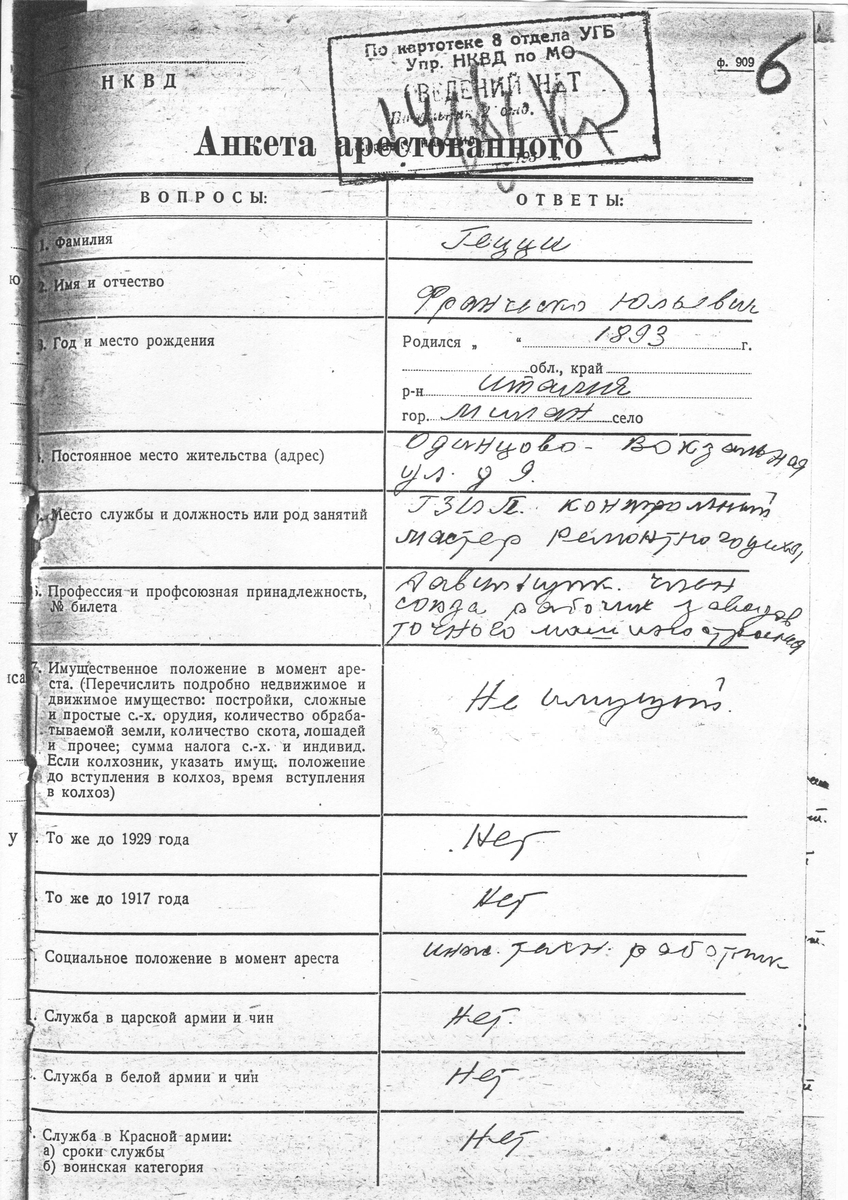 По картотеке 8 отдела УГБ
Упр. НКВД по МО
СВЕДЕНИЙ НЕТ
НКВД
ф. 909
6
Анкета арестованного
193 г.
ВОПРОСЫ:
ОТВЕТЫ:
1. Фамилия
Гецци
2. Имя и отчество
Франческо Юльевич
3. Год и место рождения
Родился „ “ 1893 г.
обл., край
р-н Италия
гор. Милан село
Постоянное место жительства (адрес)
Одинцово - Вокзальная
ул. д 9.
Место службы и должность или род занятий
контрольный
мастер ремонтного цеха
Профессия и профсоюзная принадлежность,
№ билета
член
союза рабочих заводов
точного машиностроения
7. Имущественное положение в момент аре-
ста. (Перечислить подробно недвижимое и
движимое имущество: постройки, сложные
и простые с.-х. орудия, количество обраба-
тываемой земли, количество скота, лошадей
и прочее; сумма налога с.-х. и индивид.
Если колхозник, указать имущ. положение
до вступления в колхоз, время вступления
в колхоз)
Не имущий.
То же до 1929 года
Нет
То же до 1917 года
Нет
Социальное положение в момент ареста
инж. техн. работник
Служба в царской армии и чин
Нет.
Служба в белой армии и чин
Нет
Служба в Красной армии:
а) сроки службы
б) воинская категория
Нет